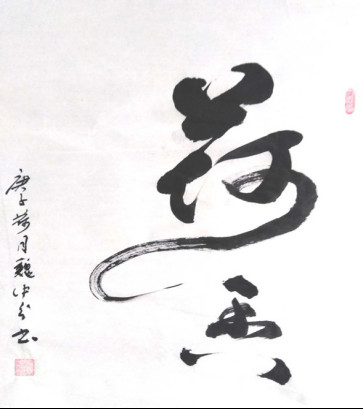 荷香
庚子荷月魏
书